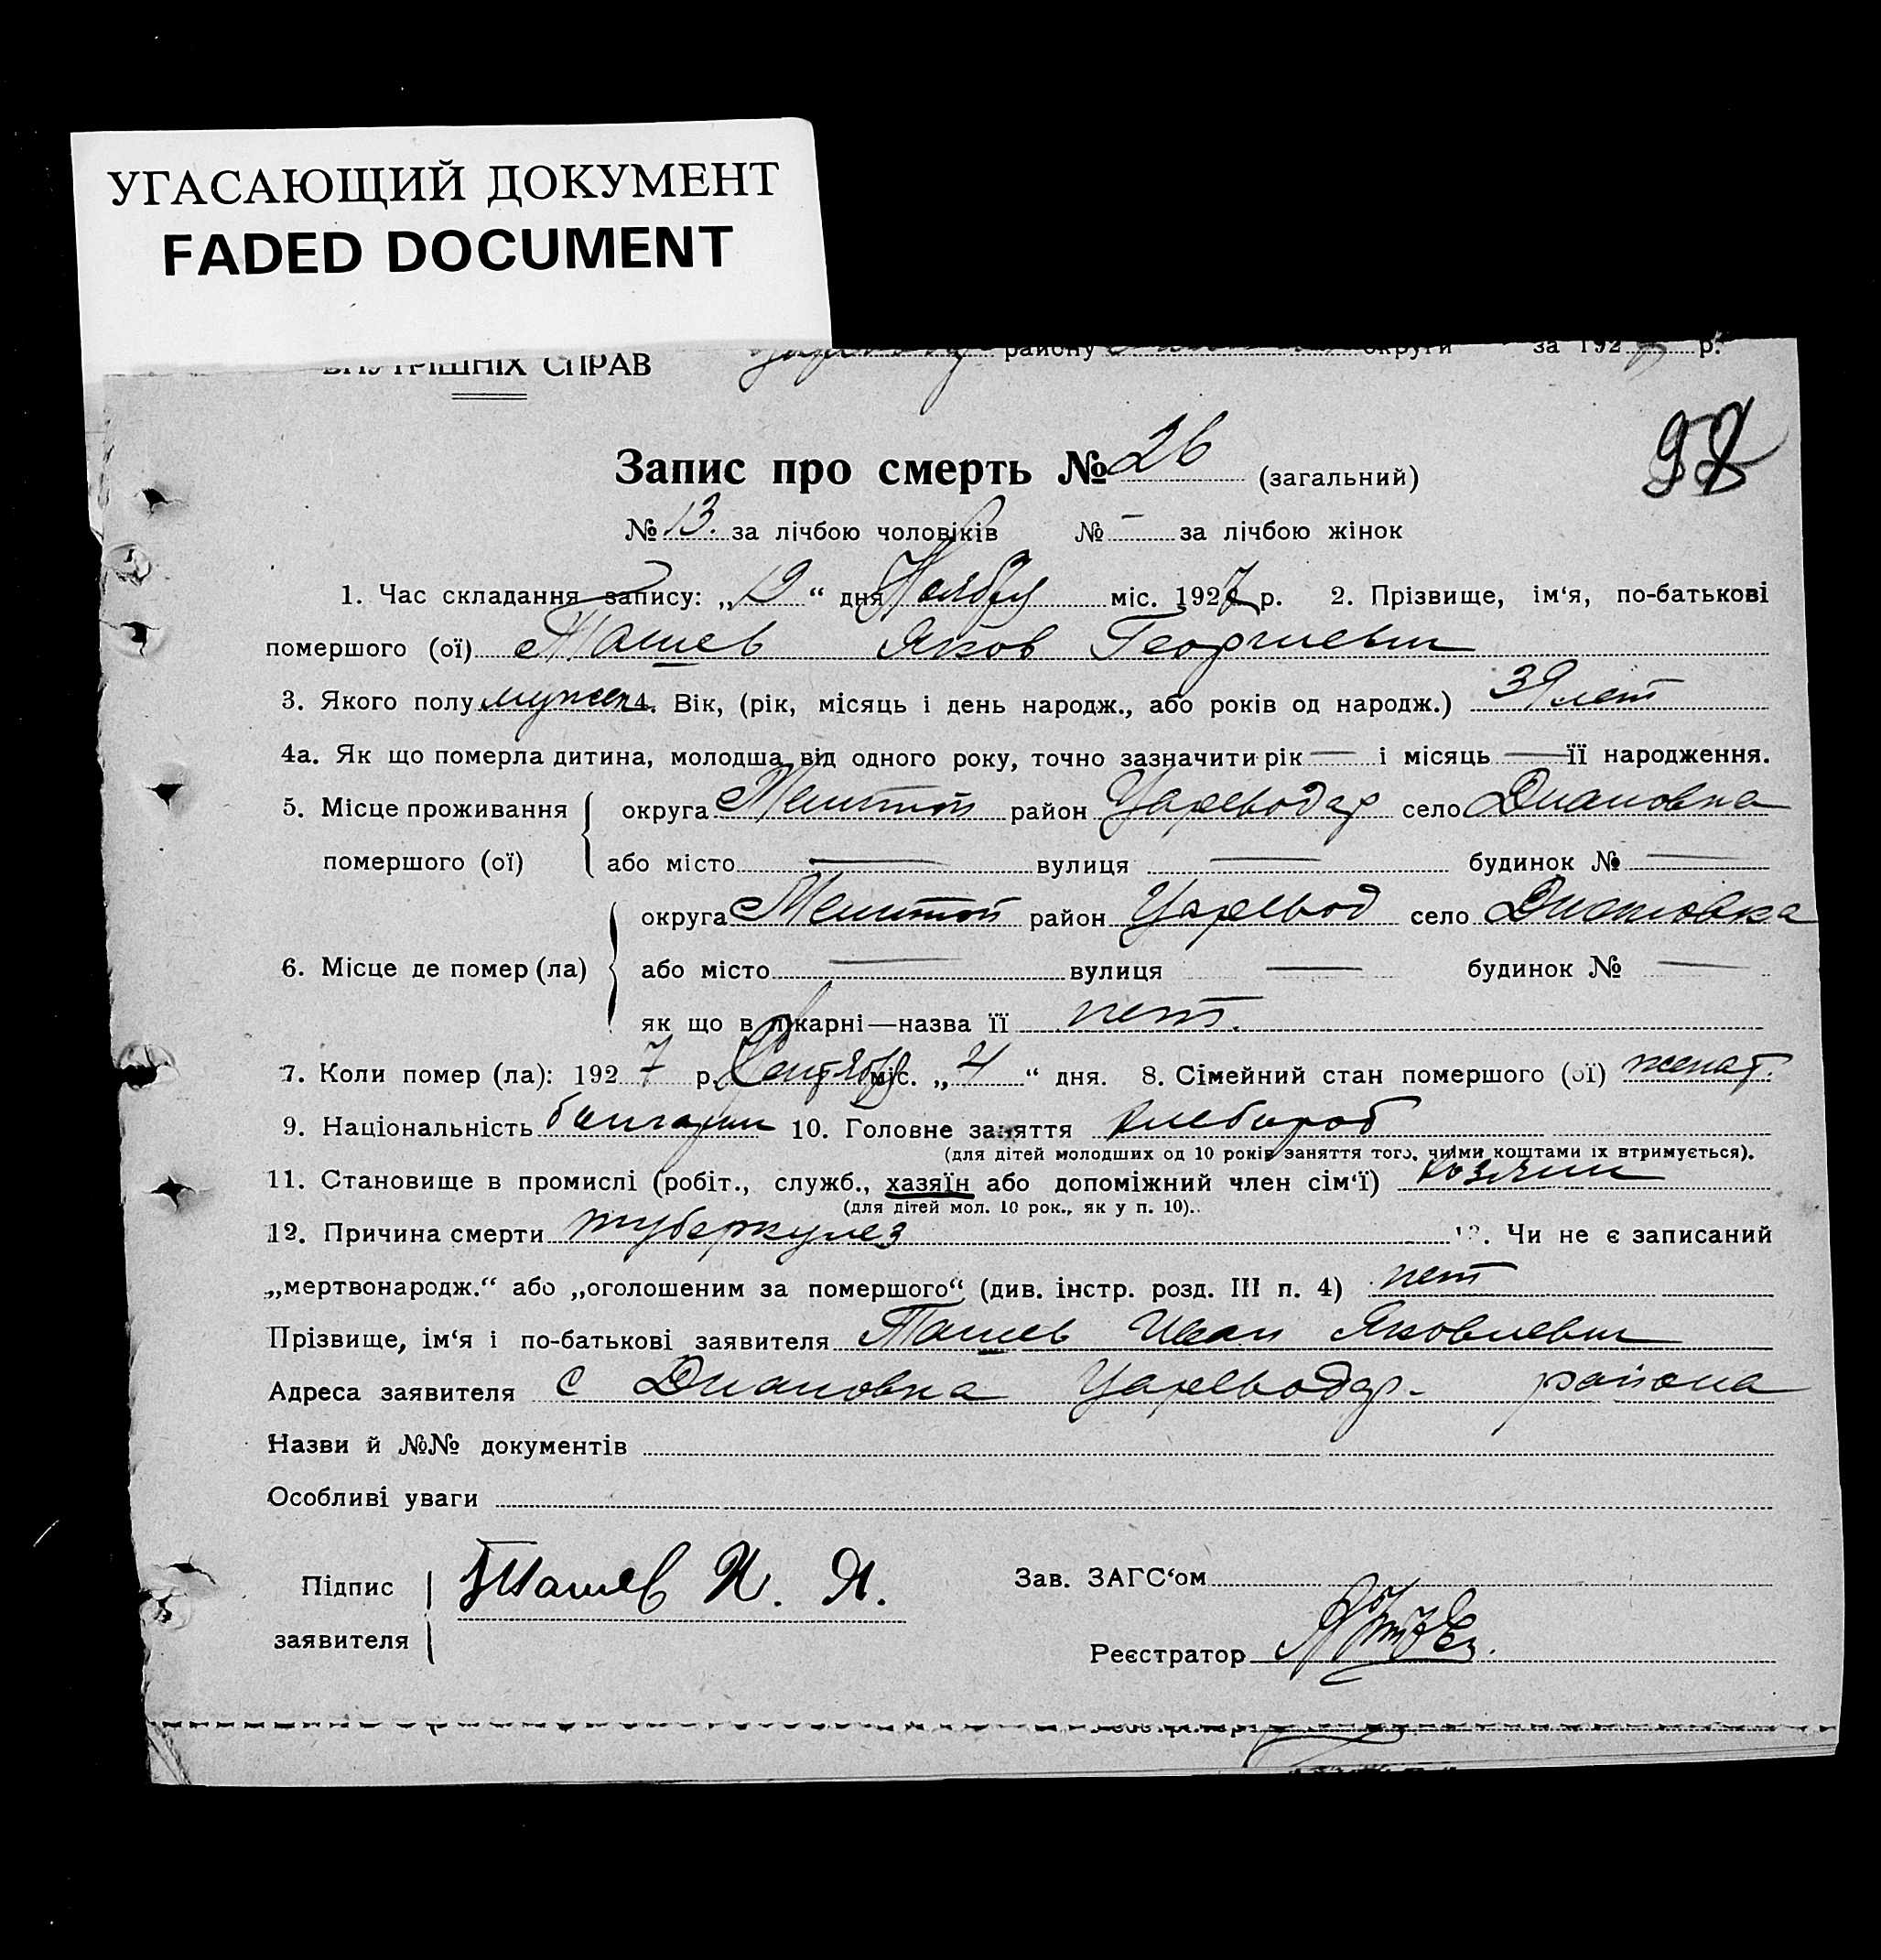 УГАСАЮЩИЙ ДОКУМЕНТ
FADED DOCUMENT
ВНУТРІШНІХ СПРАВ району округи за 192 р.
Запис про смерть № 26 (загальний)
№ 13. за лічбою чоловіків № — за лічбою жінок
1. Час складання запису: „12“ дня Ноября міс. 1927 р. 2. Прізвище, ім‘я, по-батькові
помершого (ої) Ташев Яков Георгиевич
3. Якого полу мужск 4. Вік, (рік, місяць і день народж., або років од народж.) 39 лет
4а. Як що померла дитина, молодша від одного року, точно зазначити рік — і місяць — її народження.
5. Місце проживання округа район Цареводар село Диановка
помершого (ої) або місто — вулиця — будинок № —
округа район Царевод село Диановка
6. Місце де помер (ла) або місто — вулиця — будинок № —
як що в лікарні—назва її нет.
7. Коли помер (ла): 1927 р. Сентября міс. „4“ дня. 8. Сімейний стан помершого (ої) женат.
9. Національність болгарин 10. Головне заняття хлебороб
(для дітей молодших од 10 років заняття того, чиїми коштами їх втримується).
11. Становище в промислі (робіт., служб., хазяїн або допоміжний член сім‘ї) хозяин
(для дітей мол. 10 рок., як у п. 10).
12. Причина смерти туберкулез 13. Чи не є записаний
„мертвонародж.“ або „оголошеним за помершого“ (див. інстр. розд. III п. 4) нет
Прізвище, ім‘я і по-батькові заявителя Ташев Иван Яковлевич
Адреса заявителя с Диановка Цареводар. района
Назви й №№ документів
Особливі уваги
Підпис Ташев И. Я. Зав. ЗАГС‘ом
заявителя Реєстратор